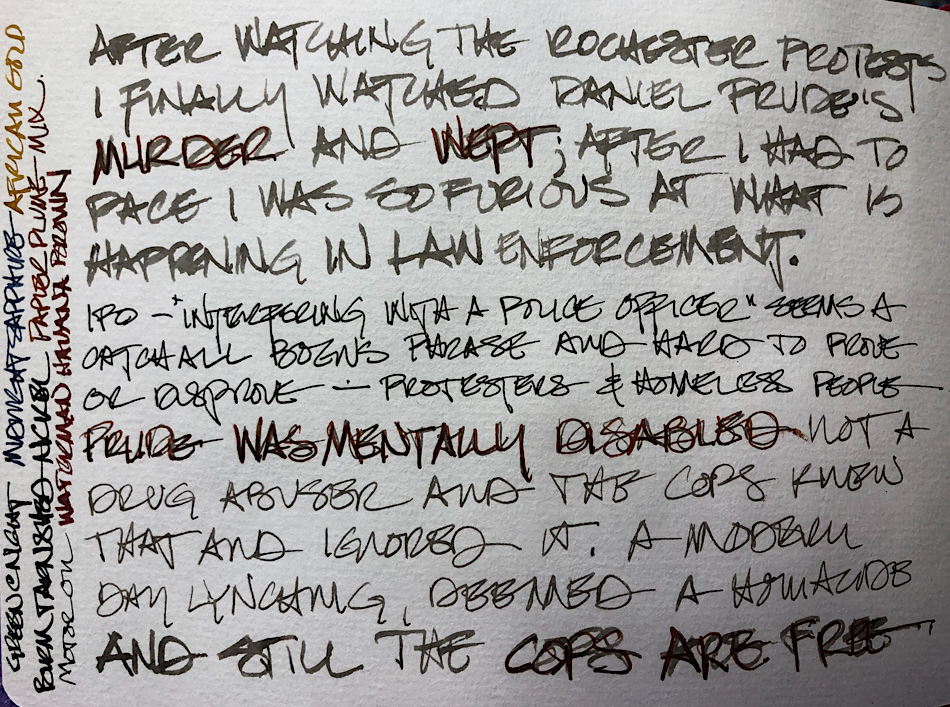 AFTER WATCHING THE ROCHESTER PROTESTS
I FINALLY WATCHED DANIEL PRUDE'S
MURDER AND WEPT; AFTER I HAD TO
PACE I WAS SO FURIOUS AT WHAT IS
HAPPENING IN LAW ENFORCEMENT.
IPO - "INTERFERING WITH A POLICE OFFICER" SEEMS A
CATCHALL BOGUS PHRASE AND HARD TO PROVE
OR DISPROVE - PROTESTERS & HOMELESS PEOPLE
PRUDE WAS MENTALLY DISABLED NOT A
DRUG ABUSER AND THE COPS KNEW
THAT AND IGNORED IT. A MODERN
DAY LYNCHING, DEEMED A HOMICIDE
AND STILL THE COPS ARE FREE
GREEN CNIGHT MIDNIGHT SAPPHIRE - AFRICAN GOLD
TARNISHED NICKEL PAPIER PLUME - MIX.
WATERMAN HAVANA BROWN